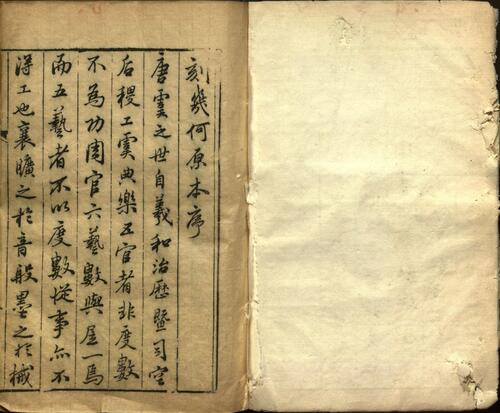 刻幾何原本序
唐虞之世自羲和治厯暨司空
后稷工虞典樂五官者非度數
不為功周官六藝數與居一焉
而五藝者不以度數從事亦不
得工也襄曠之於音般墨之於械